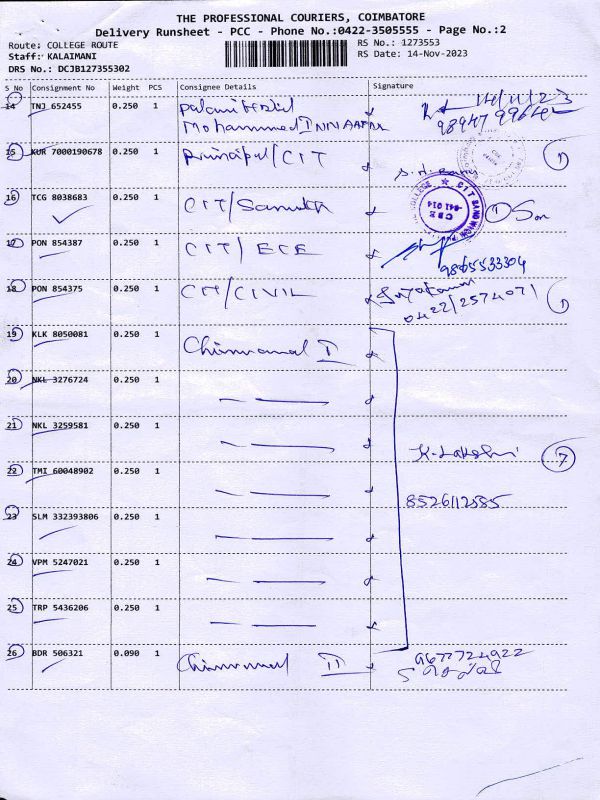 THE PROFESSIONAL COURIERS, COIMBATORE
Delivery Runsheet - PCC - Phone No.:0422-3505555 - Page No.:2
Route: COLLEGE ROUTE RS No.: 1273553
Staff: KALAIMANI RS Date: 14-Nov-2023
DRS No.: DCJB127355302
S No Consignment No Weight PCS Consignee Details Signature
14 TNJ 652455 0.250 1
Mohammed 14/11/23
15 KUR 7000190678 0.250 1 Principal/CIT 1
16 TCG 8038683 0.250 1 CIT/ 1
COLLEGE ★ CIT SAND
CBE
641 014
17 PON 854387 0.250 1 CIT/ECE
9865533304
18 PON 854375 0.250 1 CIT/CIVIL 1
0422/2574071
19 KLK 8050081 0.250 1 II
20 NKL 3276724 0.250 1 — —
21 NKL 3259581 0.250 1 — —
K. 7
22 TMI 60048902 0.250 1 — —
8526112585
23 SLM 332393806 0.250 1 — —
24 VPM 5247021 0.250 1 — —
25 TRP 5436206 0.250 1 — —
26 BDR 506321 0.090 1 II 9677724922